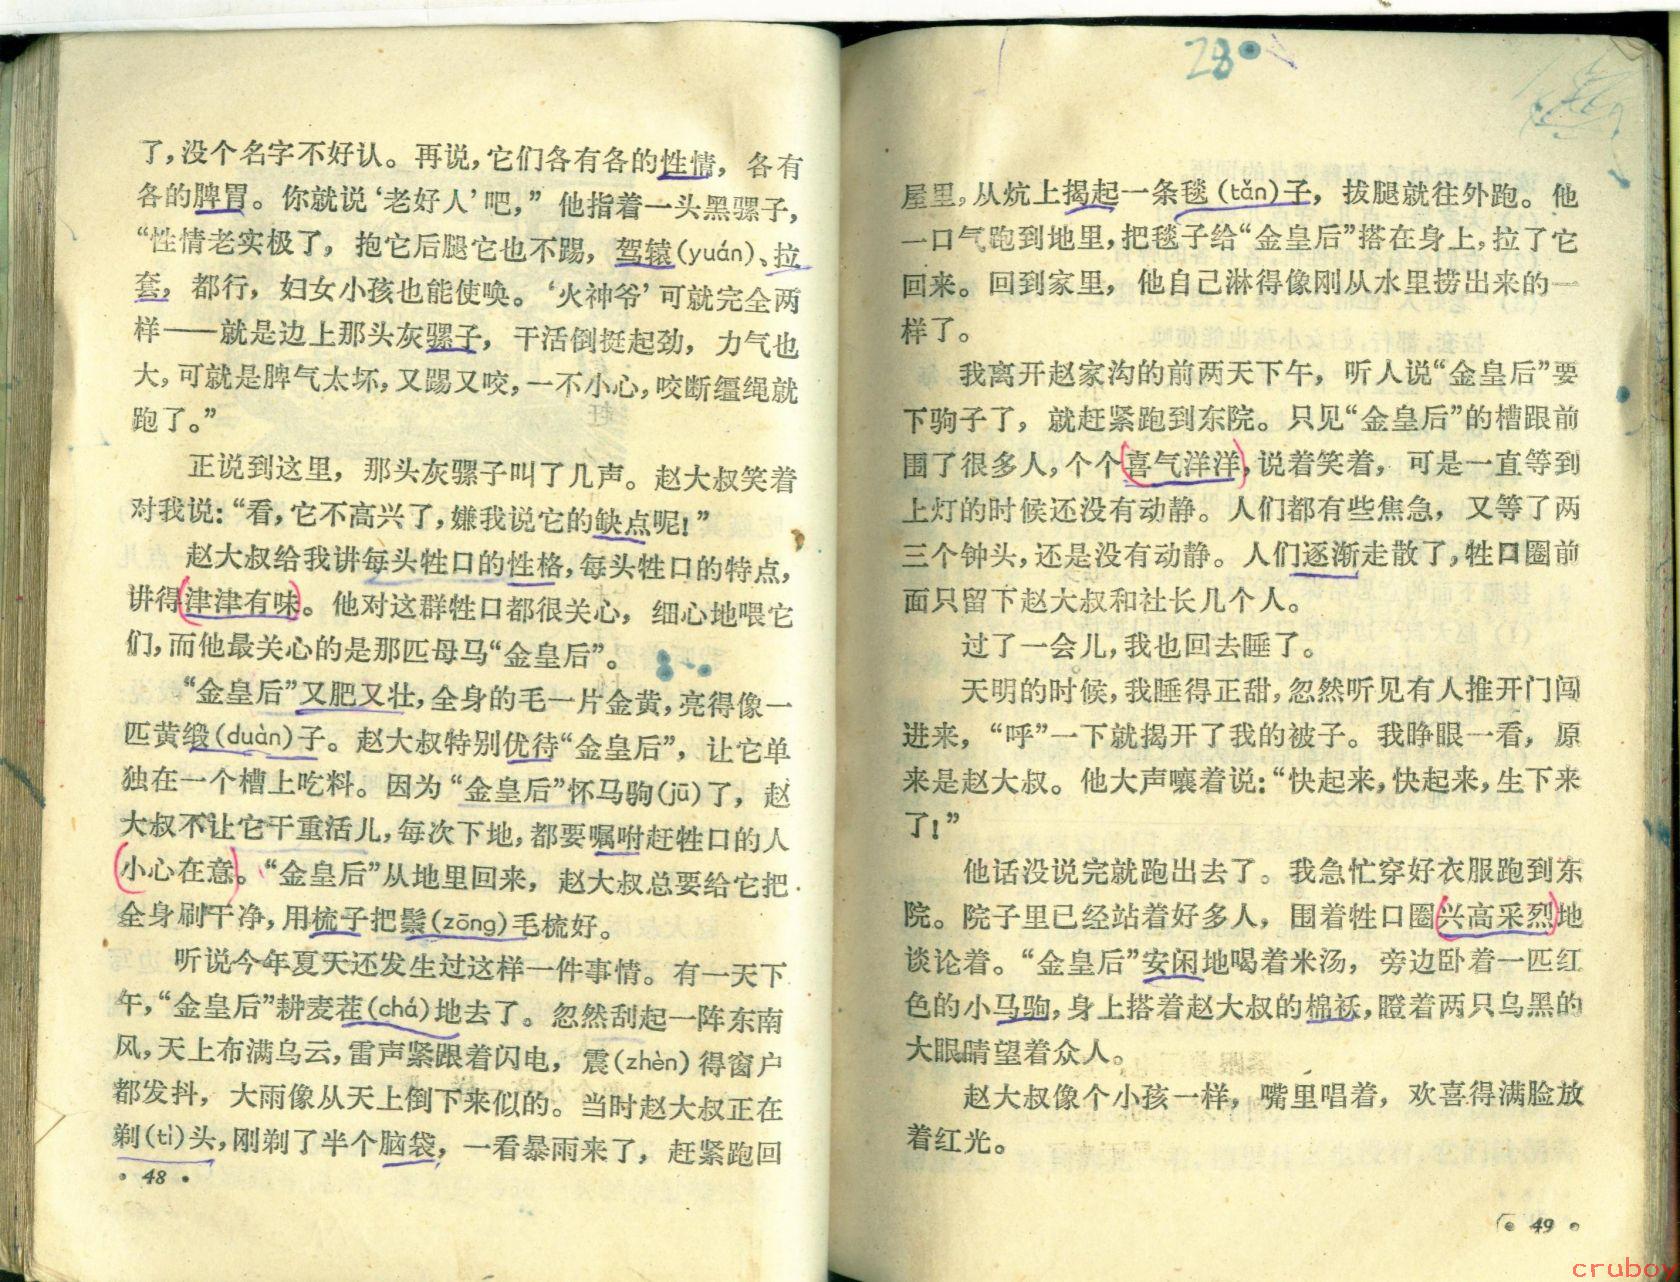 了，没个名字不好认。再说，它们各有各的性情，各有
各的脾胃。你就说‘老好人’吧，”他指着一头黑骡子，
“性情老实极了，抱它后腿它也不踢，驾辕(yuán)、拉
套，都行，妇女小孩也能使唤。‘火神爷’可就完全两
样——就是边上那头灰骡子，干活倒挺起劲，力气也
大，可就是脾气太坏，又踢又咬，一不小心，咬断缰绳就
跑了。”
正说到这里，那头灰骡子叫了几声。赵大叔笑着
对我说：“看，它不高兴了，嫌我说它的缺点呢！”
赵大叔给我讲每头牲口的性格，每头牲口的特点，
讲得津津有味。他对这群牲口都很关心，细心地喂它
们，而他最关心的是那匹母马“金皇后”。
“金皇后”又肥又壮，全身的毛一片金黄，亮得像一
匹黄缎(duàn)子。赵大叔特别优待“金皇后”，让它单
独在一个槽上吃料。因为“金皇后”怀马驹(jū)了，赵
大叔不让它干重活儿，每次下地，都要嘱咐赶牲口的人
小心在意。“金皇后”从地里回来，赵大叔总要给它把
全身刷干净，用梳子把鬃(zōng)毛梳好。
听说今年夏天还发生过这样一件事情。有一天下
午，“金皇后”耕麦茬(chá)地去了。忽然刮起一阵东南
风，天上布满乌云，雷声紧跟着闪电，震(zhèn)得窗户
都发抖，大雨像从天上倒下来似的。当时赵大叔正在
剃(tì)头，刚剃了半个脑袋，一看暴雨来了，赶紧跑回
·48·
28
屋里，从炕上揭起一条毯(tǎn)子，拔腿就往外跑。他
一口气跑到地里，把毯子给“金皇后”搭在身上，拉了它
回来。回到家里，他自己淋得像刚从水里捞出来的一
样了。
我离开赵家沟的前两天下午，听人说“金皇后”要
下驹子了，就赶紧跑到东院。只见“金皇后”的槽跟前
围了很多人，个个喜气洋洋，说着笑着，可是一直等到
上灯的时候还没有动静。人们都有些焦急，又等了两
三个钟头，还是没有动静。人们逐渐走散了，牲口圈前
面只留下赵大叔和社长几个人。
过了一会儿，我也回去睡了。
天明的时候，我睡得正甜，忽然听见有人推开门闯
进来，“呼”一下就揭开了我的被子。我睁眼一看，原
来是赵大叔。他大声嚷着说：“快起来，快起来，生下来
了！”
他话没说完就跑出去了。我急忙穿好衣服跑到东
院。院子里已经站着好多人，围着牲口圈兴高采烈地
谈论着。“金皇后”安闲地喝着米汤，旁边卧着一匹红
色的小马驹，身上搭着赵大叔的棉袄，瞪着两只乌黑的
大眼睛望着众人。
赵大叔像个小孩一样，嘴里唱着，欢喜得满脸放
着红光。
·49·
cruboy